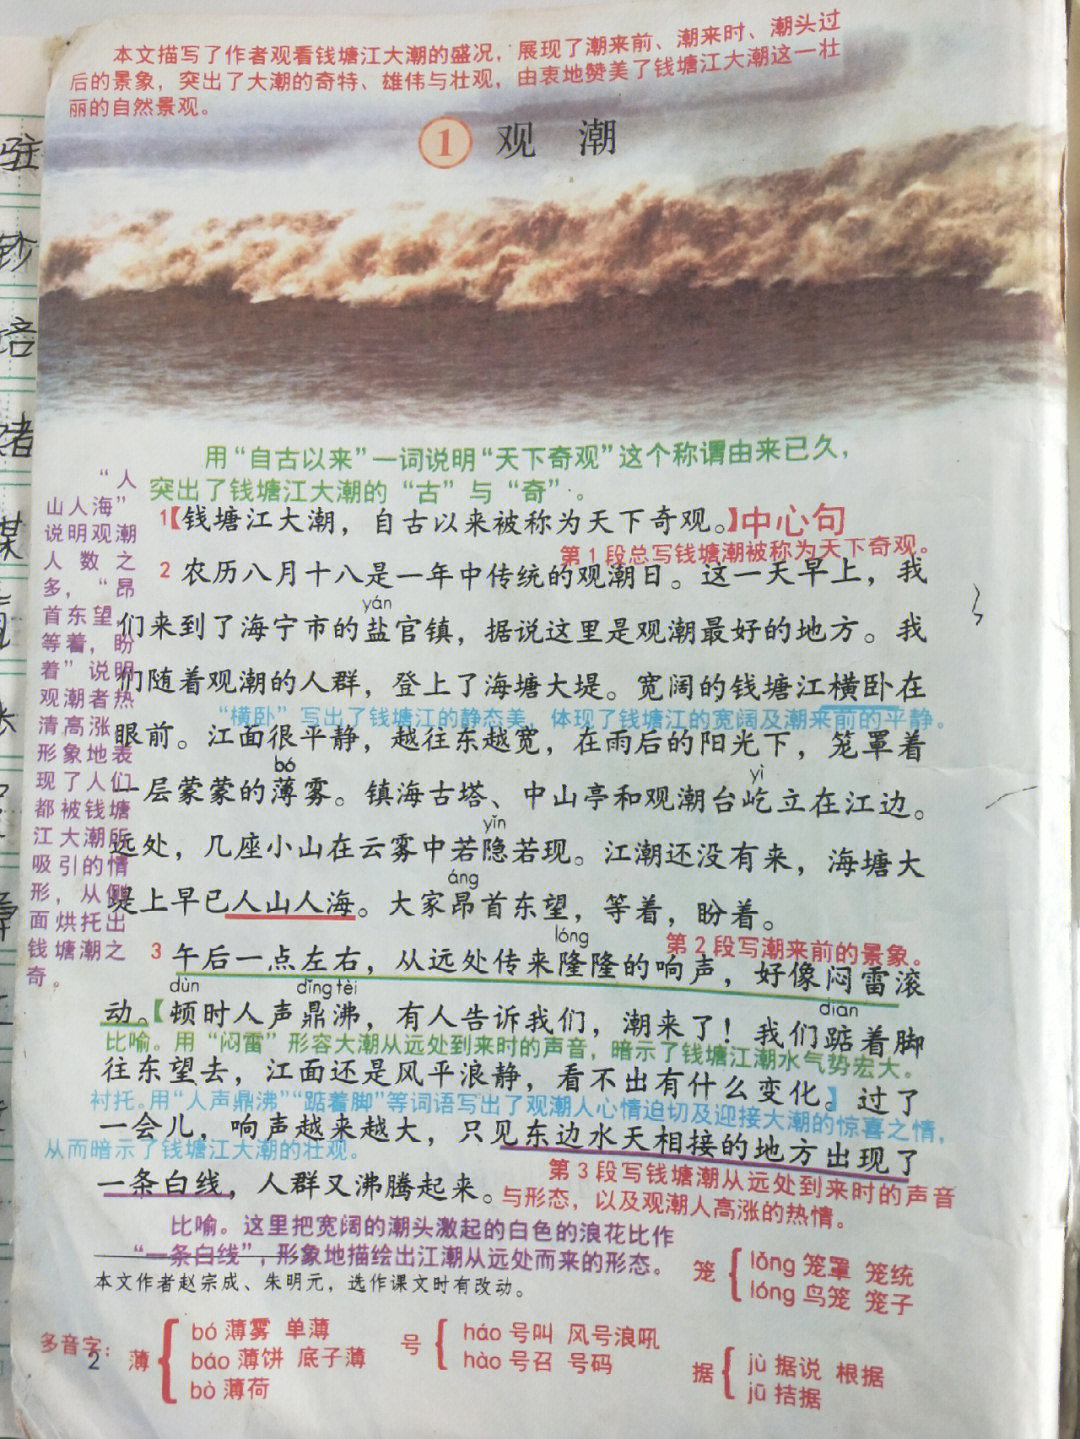 本文描写了作者观看钱塘江大潮的盛况，展现了潮来前、潮来时、潮头过
后的景象，突出了大潮的奇特、雄伟与壮观，由衷地赞美了钱塘江大潮这一壮
丽的自然景观。
1 观 潮
驻
钞
培
绪
谋
用“自古以来”一词说明“天下奇观”这个称谓由来已久，
突出了钱塘江大潮的“古”与“奇”。
“人
山人海”
说明观潮
人数之
多，“昂
首东望，
等着，盼
着”说明
观潮者热
情高涨，
形象地表
现了人们
都被钱塘
江大潮所
吸引的情
形，从侧
面烘托出
钱塘潮之
奇。
1【钱塘江大潮，自古以来被称为天下奇观。】中心句
第1段总写钱塘潮被称为天下奇观。
2 农历八月十八是一年中传统的观潮日。这一天早上，我
yán
们来到了海宁市的盐官镇，据说这里是观潮最好的地方。我
们随着观潮的人群，登上了海塘大堤。宽阔的钱塘江横卧在
“横卧”写出了钱塘江的静态美，体现了钱塘江的宽阔及潮来前的平静。
眼前。江面很平静，越往东越宽，在雨后的阳光下，笼罩着
bó yì
一层蒙蒙的薄雾。镇海古塔、中山亭和观潮台屹立在江边。
yǐn
远处，几座小山在云雾中若隐若现。江潮还没有来，海塘大
áng
堤上早已人山人海。大家昂首东望，等着，盼着。
第2段写潮来前的景象。
lóng
3 午后一点左右，从远处传来隆隆的响声，好像闷雷滚
dùn dǐng fèi diǎn
动。【顿时人声鼎沸，有人告诉我们，潮来了！我们踮着脚
比喻。用“闷雷”形容大潮从远处到来时的声音，暗示了钱塘江潮水气势宏大。
往东望去，江面还是风平浪静，看不出有什么变化。】过了
衬托。用“人声鼎沸”“踮着脚”等词语写出了观潮人心情迫切及迎接大潮的惊喜之情，
一会儿，响声越来越大，只见东边水天相接的地方出现了
从而暗示了钱塘江大潮的壮观。
一条白线，人群又沸腾起来。
第3段写钱塘潮从远处到来时的声音
与形态，以及观潮人高涨的热情。
比喻。这里把宽阔的潮头激起的白色的浪花比作
“一条白线”，形象地描绘出江潮从远处而来的形态。
本文作者赵宗成、朱明元，选作课文时有改动。
笼 lǒng 笼罩 笼统
lóng 鸟笼 笼子
多音字：
薄 bó 薄雾 单薄
báo 薄饼 底子薄
bò 薄荷
号 háo 号叫 风号浪吼
hào 号召 号码
据 jù 据说 根据
jū 拮据
2